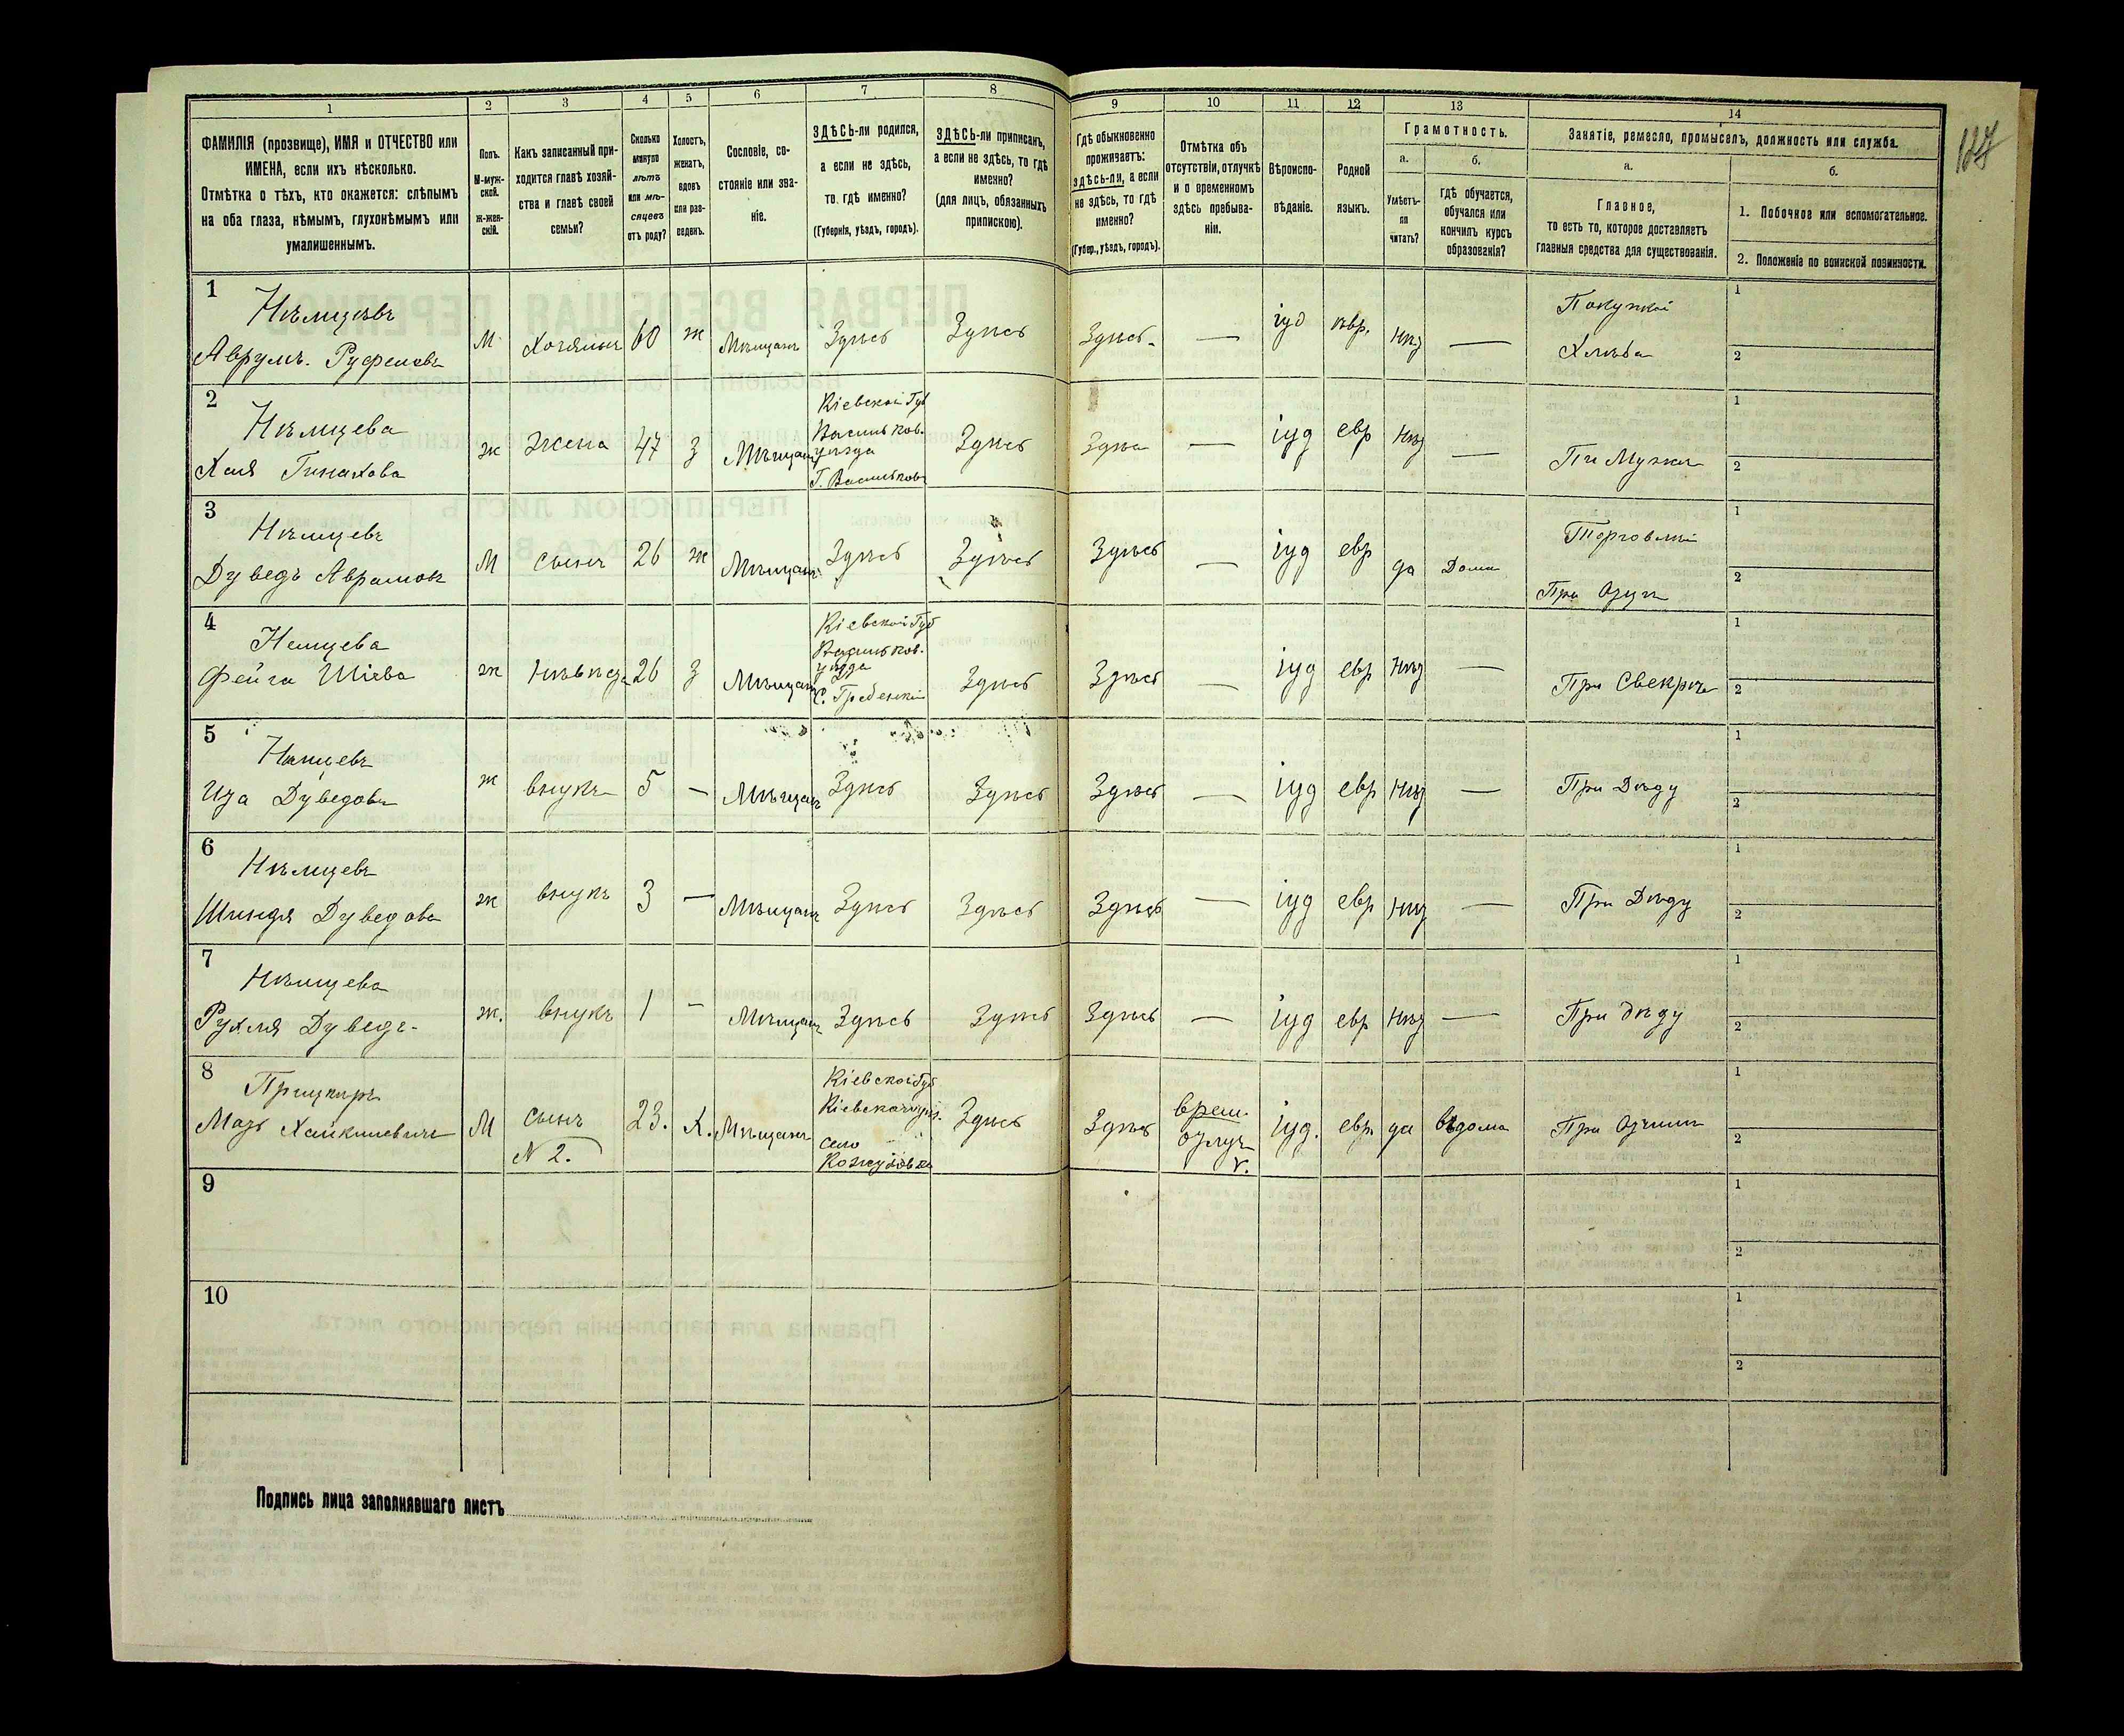 127
1 2 3 4 5 6 7 8 9 10 11 12 13 14
ФАМИЛІЯ (прозвище), ИМЯ и ОТЧЕСТВО или
ИМЕНА, если ихъ нѣсколько.
Отмѣтка о тѣхъ, кто окажется: слѣпымъ
на оба глаза, нѣмымъ, глухонѣмымъ или
умалишеннымъ.
Полъ.
М-муж-
ской.
Ж-жен-
скій.
Какъ записанный при-
ходится главѣ хозяй-
ства и главѣ своей
семьи?
Сколько
минуло
лѣтъ
или мѣ-
сяцевъ
отъ роду?
Холостъ,
женатъ,
вдовъ
или раз-
веденъ.
Сословіе, со-
стояніе или зва-
ніе.
ЗДѢСЬ-ли родился,
а если не здѣсь,
то гдѣ именно?
(Губернія, уѣздъ, городъ).
ЗДѢСЬ-ли приписанъ,
а если не здѣсь, то гдѣ
именно?
(для лицъ, обязанныхъ
припискою).
Гдѣ обыкновенно
проживаетъ:
здѣсь-ли, а если
не здѣсь, то гдѣ
именно?
(Губер., уѣздъ, городъ).
Отмѣтка объ
отсутствіи, отлучкѣ
и о временномъ
здѣсь пребыва-
ніи.
Вѣроиспо-
вѣданіе.
Родной
языкъ.
Грамотность.
а.
Умѣетъ-
ли
читать?
б.
гдѣ обучается,
обучался или
кончилъ курсъ
образованія?
Занятіе, ремесло, промыселъ, должность или служба.
а.
Главное,
то есть то, которое доставляетъ
главныя средства для существованія.
б.
1. Побочное или вспомогательное.
2. Положеніе по воинской повинности.
1 Нѣмцевъ
Аврумъ. Руфеловъ М Хозяинъ 60 ж Мѣщанъ Здѣсь Здѣсь Здѣсь — іуд евр. нѣт — Покупкой
Хлѣба
1
2
2 Нѣмцева
Хая ж Жена 47 З Мѣщан Кіевской Губ
Васильков.
уѣзда
Г. Васильков Здѣсь — іуд евр нѣт — При Мужѣ
1
2
3 Нѣмцевъ
Дуведъ Аврамовъ М сынъ 26 ж Мѣщанъ Здѣсь Здѣсь Здѣсь — іуд евр да Дома Торговлей
При Отцѣ
1
2
4 Немцева
Фейга ж Невѣста 26 З Мѣщан Кіевской Губ
Васильков.
уѣзда
с. Гребенки Здѣсь Здѣсь — іуд евр нѣт — При Свекрѣ
1
2
5
Дуведовъ ж внукъ 5 — Мѣщан Здѣсь Здѣсь Здѣсь — іуд евр нѣт — При Дѣду
1
2
6 Нѣмцевъ
Шиндя Дуведова ж внукъ 3 — Мѣщан Здѣсь Здѣсь Здѣсь — іуд евр нѣт — При Дѣду
1
2
7 Нѣмцева
Рухля Дуведъ- ж. внукъ 1 — Мѣщан Здѣсь Здѣсь Здѣсь — іуд евр нѣт — При дѣду
1
2
8 Прицкеръ
М сынъ
N 2. 23. Х. Мѣщанъ Кіевской Губ
Кіевскаго уѣз.
село
Кожуховка Здѣсь Здѣсь врем.
отлуч іуд. евр да дома При Отчимѣ
1
2
9
1
2
10
1
2
Подпись лица заполнявшаго листъ